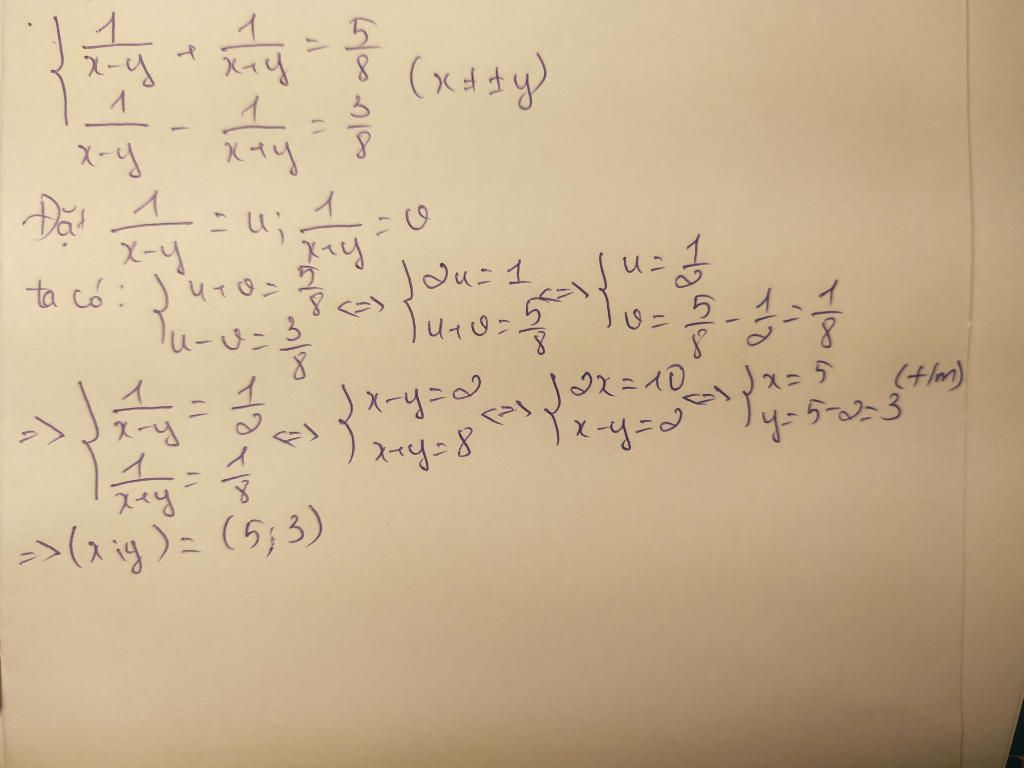 { 1/(x-y) + 1/(x+y) = 5/8
1/(x-y) - 1/(x+y) = 3/8 (x ≠ ± y)
Đặt 1/(x-y) = u; 1/(x+y) = v
ta có: { u+v = 5/8; u-v = 3/8 <=> { 2u = 1; u+v = 5/8 <=> { u = 1/2; v = 5/8 - 1/2 = 1/8
=> { 1/(x-y) = 1/2; 1/(x+y) = 1/8 <=> { x-y=2; x+y=8 <=> { 2x=10; x-y=2 <=> { x=5; y=5-2=3 (t/m)
=> (x;y) = (5;3)